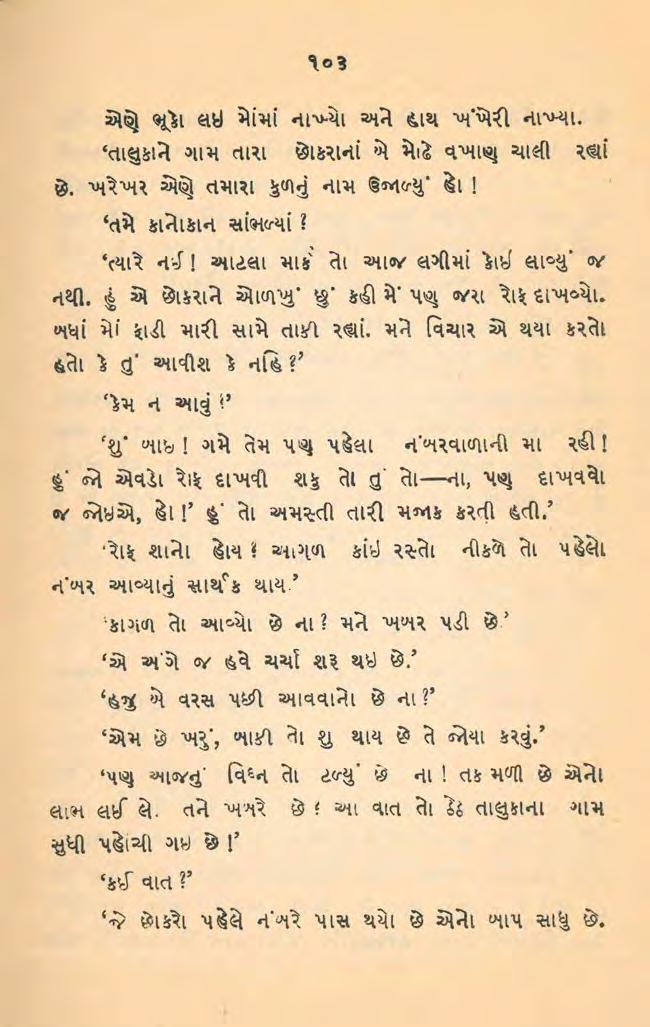 ૧૦૩
એણે ભૂકો લઇ મોંમાં નાખ્યો અને હાથ ખંખેરી નાખ્યા.
‘તાલુકાને ગામ તારા છોકરાનાં બે મોઢે વખાણ ચાલી રહ્યાં
છે. ખરેખર એણે તમારા કુળનું નામ ઉજાળ્યું હો !
‘તમે કાનોકાન સાંભળ્યાં ?
‘ત્યારે નઈ ! આટલા માર્ક તો આજ લગીમાં કોઇ લાવ્યું જ
નથી. હું એ છોકરાને ઓળખું છું કહી મેં પણ જરા રોફ દાખવ્યો.
બધાં મોં ફાડી મારી સામે તાકી રહ્યાં. મને વિચાર એ થયા કરતો
હતો કે તું આવીશ કે નહિ ?’
‘કેમ ન આવું ?’
‘શું બાઇ ! ગમે તેમ પણ પહેલા નંબરવાળાની મા રહી !
હું જો એવડો રોફ દાખવી શકુ તો તું તો—ના, પણ દાખવવો
જ જોઇએ, હો !’ હું તો અમસ્તી તારી મજાક કરતી હતી.’
‘રોફ શાનો હોય ? આગળ કાંઇ રસ્તો નીકળે તો પહેલો
નંબર આવ્યાનું સાર્થક થાય.’
‘કાગળ તો આવ્યો છે ના ? મને ખબર પડી છે.’
‘એ અંગે જ હવે ચર્ચા શરૂ થઇ છે.’
‘હજુ બે વરસ પછી આવવાનો છે ના ?’
‘એમ છે ખરું, બાકી તો શુ થાય છે તે જોયા કરવું.’
‘પણ આજનું વિઘ્ન તો ટળ્યું છે ના ! તક મળી છે એનો
લાભ લઈ લે. તને ખબર છે ? આ વાત તો ઠેઠ તાલુકાના ગામ
સુધી પહોંચી ગઇ છે !’
‘કઈ વાત ?’
‘જે છોકરો પહેલે નંબરે પાસ થયો છે એનો બાપ સાધુ છે.